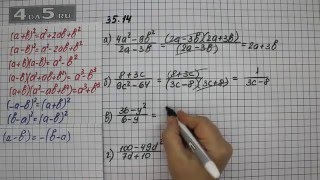 4DA5.RU
35.14
(a+b)²=a²+2ab+b²
(a-b)²=a²-2ab+b²
(a-b)(a+b)=a²-b²
(a-b)(a²+ab+b²)=a³-b³
(a+b)(a²-ab+b²)=a³+b³
(-a-b)²=(a+b)²
(b-a)²=(a-b)²
(a-b)=-(b-a)
а) 4a²-9b² / 2a-3b = (2a-3b)(2a+3b) / (2a-3b) = 2a+3b
б) 8+3c / 9c²-64 = (8+3c) / (3c-8)(3c+8) = 1 / 3c-8
в) 36-y² / 6-y =
г) 100-49d² / 7d+10 =